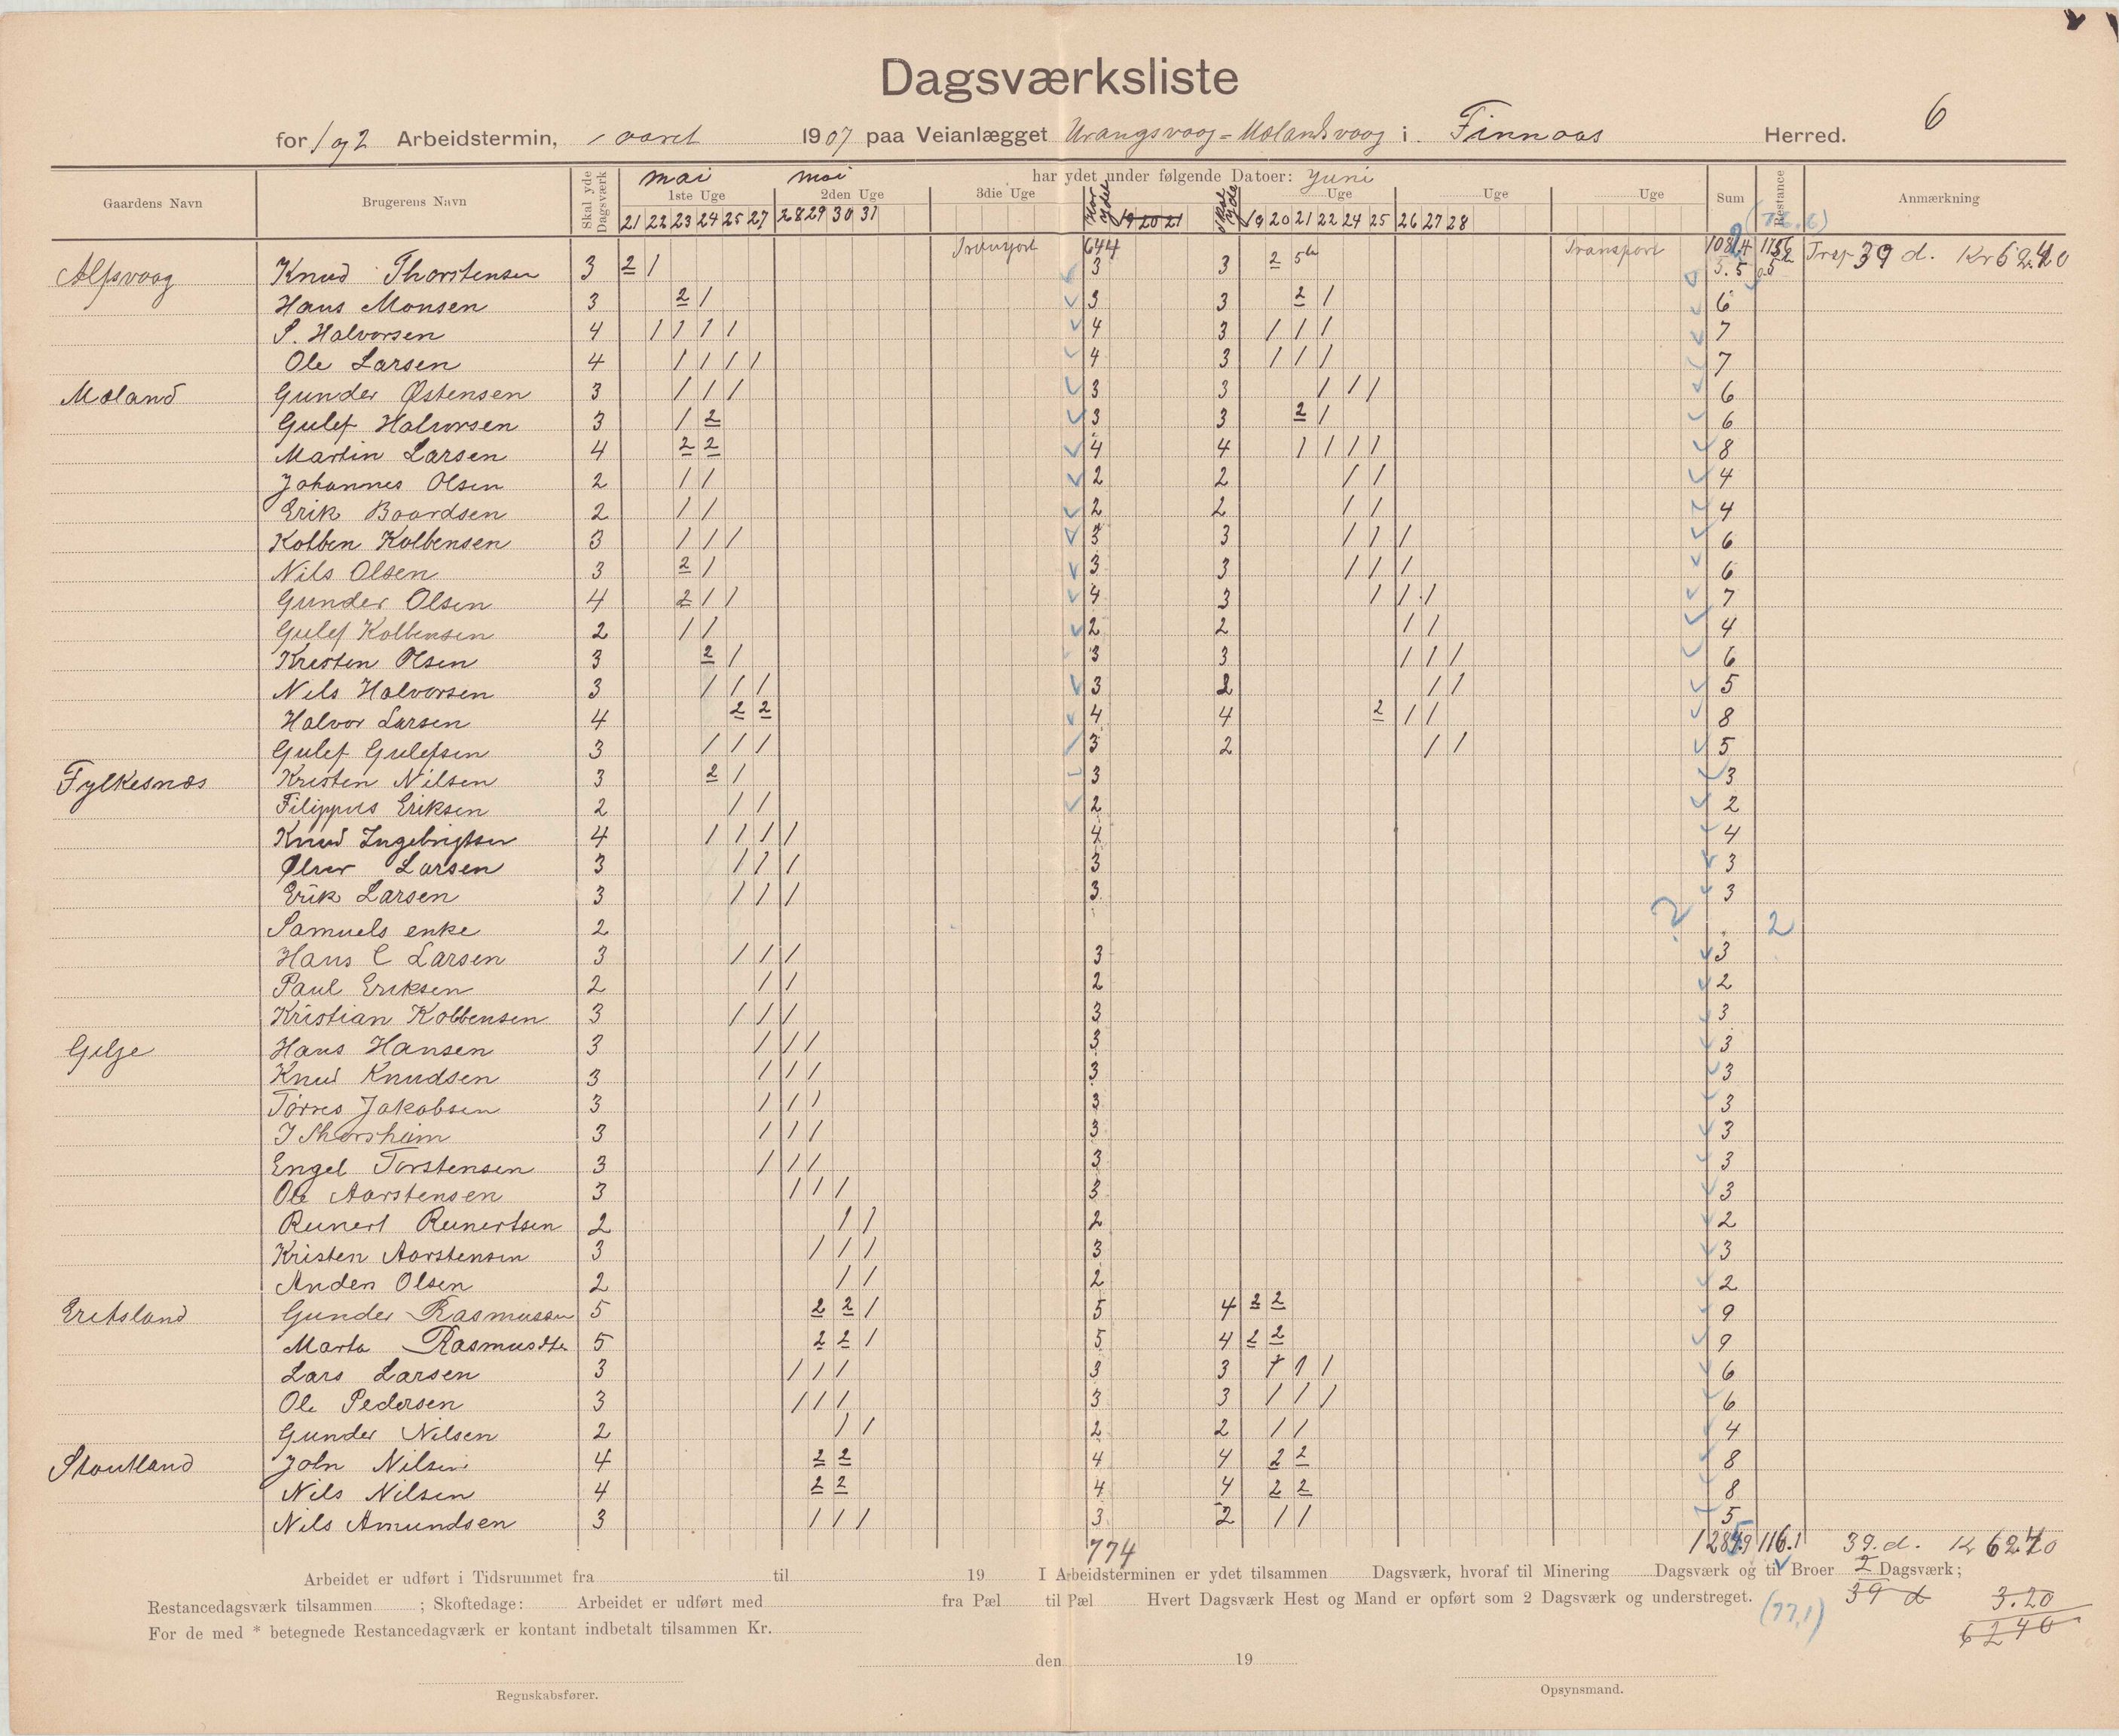 6
Dagsværksliste
for 1 og 2 Arbeidstermin, i aaret 1907 paa Veianlægget Urangsvaag - Mølandsvaag i Finnaas Herred.
Gaardens Navn Brugerens Navn Skal yde Dagsværk har ydet under følgende Datoer: Juni Sum Restance Anmærkning
mai mai
1ste Uge 2den Uge 3die Uge Har ydet Skal yde Uge Uge Uge
21 22 23 24 25 27 28 29 30 31 19 20 21 19 20 21 22 24 25 26 27 28
Transport 644 Transport Trsp 39 d. Kr 62.40
Alfsvaag Knud Thorstensen 3 2 1 3 3 2 5.5 0.5
Hans Monsen 3 2 1 3 3 2 1 6
S. Halvorsen 4 1 1 1 1 4 3 1 1 1 7
Ole Larsen 4 1 1 1 1 4 3 1 1 1 7
Møland Gunder Østensen 3 1 1 1 3 3 1 1 1 6
Gulef Halvorsen 3 1 2 3 3 2 1 6
Martin Larsen 4 2 2 4 4 1 1 1 1 8
Johannes Olsen 2 1 1 2 2 1 1 4
Erik Baardsen 2 1 1 2 2 1 1 4
Kolben Kolbensen 3 1 1 1 3 3 1 1 1 6
Nils Olsen 3 2 1 3 3 1 1 1 6
Gunder Olsen 4 2 1 1 4 3 1 1 1 7
Gulef Kolbensen 2 1 1 2 2 1 1 4
Kristen Olsen 3 2 1 3 3 1 1 1 6
Nils Halvorsen 3 1 1 1 3 2 1 1 5
Halvor Larsen 4 2 2 4 4 2 1 1 8
Gulef Gulefsen 3 1 1 1 3 2 1 1 5
Fylkesnæs Kristen Nilsen 3 2 1 3 3
Filippus Eriksen 2 1 1 2 2
Knud Ingebrigtsen 4 1 1 1 1 4 4
Larsen 3 1 1 1 3 3
Erik Larsen 3 1 1 1 3 3
Samuels enke 2 ? 2
Hans C Larsen 3 1 1 1 3 3
Paul Eriksen 2 1 1 2 2
Kristian Kolbensen 3 1 1 1 3 3
Gilje Hans Hansen 3 1 1 1 3 3
Knud Knudsen 3 1 1 1 3 3
Tørres Jakobsen 3 1 1 1 3 3
J Thorsheim 3 1 1 1 3 3
Engel Torstensen 3 1 1 1 3 3
Ole Aarstensen 3 1 1 1 3 3
Reinert Reinertsen 2 1 1 2 2
Kristen Aarstensen 3 1 1 1 3 3
Anden Olsen 2 1 1 2 2
Eriksland Gunder Rasmussen 5 2 2 1 5 4 2 2 9
Marta Rasmusdtr 5 2 2 1 5 4 2 2 9
Lars Larsen 3 1 1 1 3 3 1 1 1 6
Ole Pedersen 3 1 1 1 3 3 1 1 1 6
Gunder Nilsen 2 1 1 2 2 1 1 4
Stautland John Nilsen 4 2 2 4 4 2 2 8
Nils Nilsen 4 2 2 4 4 2 2 8
Nils Amundsen 3 1 1 1 3 2 1 1 5
774 116.1 39. d. Kr 62.40
Arbeidet er udført i Tidsrummet fra til 19 I Arbeidsterminen er ydet tilsammen Dagsværk, hvoraf til Minering Dagsværk og til Broer 2 Dagsværk;
Restancedagsværk tilsammen ; Skoftedage: Arbeidet er udført med fra Pæl til Pæl Hvert Dagsværk Hest og Mand er opført som 2 Dagsværk og understreget. 39 d 3.20
(77,1) 6240
For de med * betegnede Restancedagværk er kontant indbetalt tilsammen Kr.
den 19
Regnskabsfører. Opsynsmand.